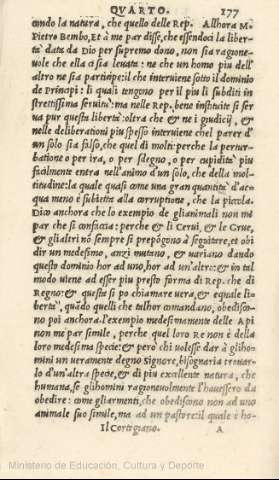 QVARTO. 177
condo la natura, che quello delle Rep. Allhora M.
Pietro Bembo, Et à me par disse, che essendoci la liber=
tà data da Dio per supremo dono, non sia ragione=
uole che ella ci sia leuata: ne che un homo piu dell'
altro ne sia participe: il che interuiene sotto il dominio
de Principi: li quali tengono per il piu li subditi in
strettissima seruitù: ma nelle Rep. bene instituite si ser
ua pur questa libertà: oltra che & ne i giudicij, &
nelle deliberationi piu spesso interuiene chel parer d'
un solo sia falso, che quel di molti: perche la pertur=
batione o per ira, o per sdegno, o per cupidità piu
facilmente entra nell'animo d'un solo, che della mol=
titudine: la quale quasi come una gran quantità d'ac=
qua meno è subietta alla corruptione, che la piccola.
Dico anchora che lo exempio de glianimali non mi
par che si confaccia: perche & li Cerui, & le Grue,
& gli altri nõ sempre si prepõgono à seguitare, et obi
dir un medesimo, anzi mutano, & uariano dando
questo dominio hor ad uno, hor ad un'altro: & in tal
modo uiene ad esser piu presto forma di Rep. che di
Regno: & questa si po chiamare uera, & equale li=
bertà, quãdo quelli che talhor comandano, obedisco=
no poi anchora. l'exempio medesimamente delle Api
non me par simile, perche quel loro Re non è della
loro medesima specie: & però chi uolesse dar à glihom=
ini un ueramente degno Signore, bisognaria trouar=
lo d'un'altra specie, & di piu excellente natura, che
humana, se glihomini ragioneuolmente l'hauessero da
obedire: come gliarmenti, che obediscono non ad uno
animale suo simile, ma ad un pastore: il quale è ho=
Il Cortegiano. A
Ministerio de Educación, Cultura y Deporte